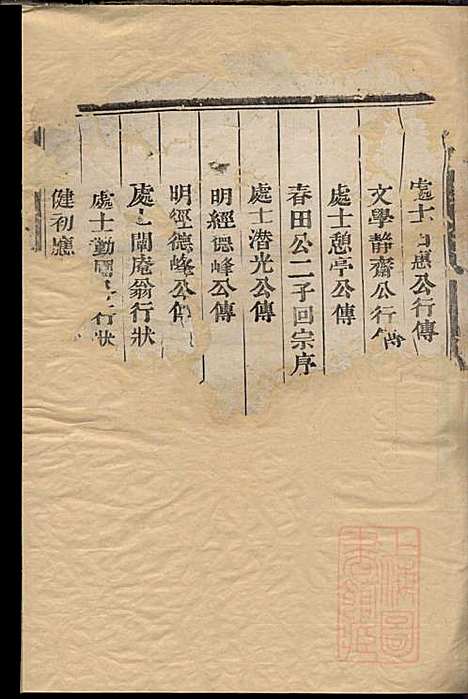 處士□惠公行傳
文學靜齋公行傳
處士憩亭公傳
春田公二子回宗序
處士潛光公傳
明經德峰公傳
明經德峰公傳
處士闇庵翁行狀
處士勤圃公行狀
健初應
上海圖
書館藏